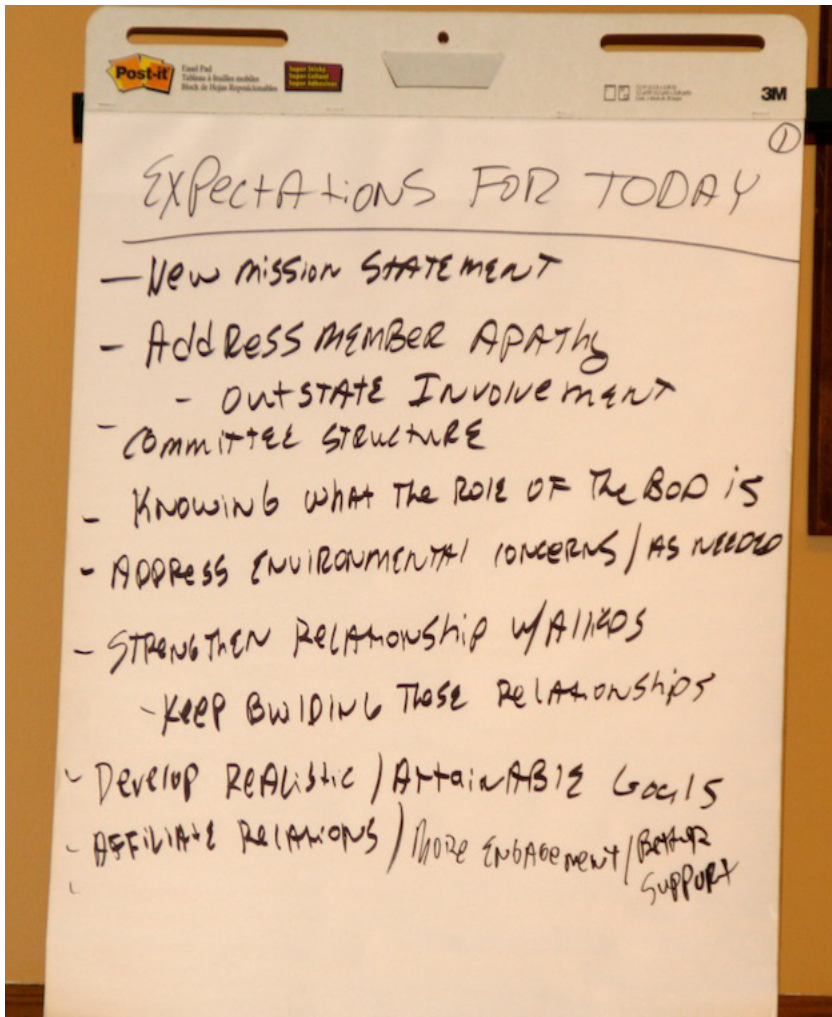 Post-it
Easel Pad
Tableau à feuilles mobiles
Block de Hojas Reposicionables
Super Sticky
Super Collant
Super Adhesivas
3M
1
EXPECTATIONS FOR TODAY
- NEW MISSION STATEMENT
- ADDRESS MEMBER APATHY
- OUTSTATE INVOLVEMENT
- COMMITTEE STRUCTURE
- KNOWING WHAT THE ROLE OF THE BOD IS
- ADDRESS ENVIRONMENTAL CONCERNS / AS NEEDED
- STRENGTHEN RELATIONSHIP W/ALLIEDS
- KEEP BUILDING THOSE RELATIONSHIPS
- DEVELOP REALISTIC / ATTAINABLE GOALS
- AFFILIATE RELATIONS / MORE ENGAGEMENT / BETTER
SUPPORT
-